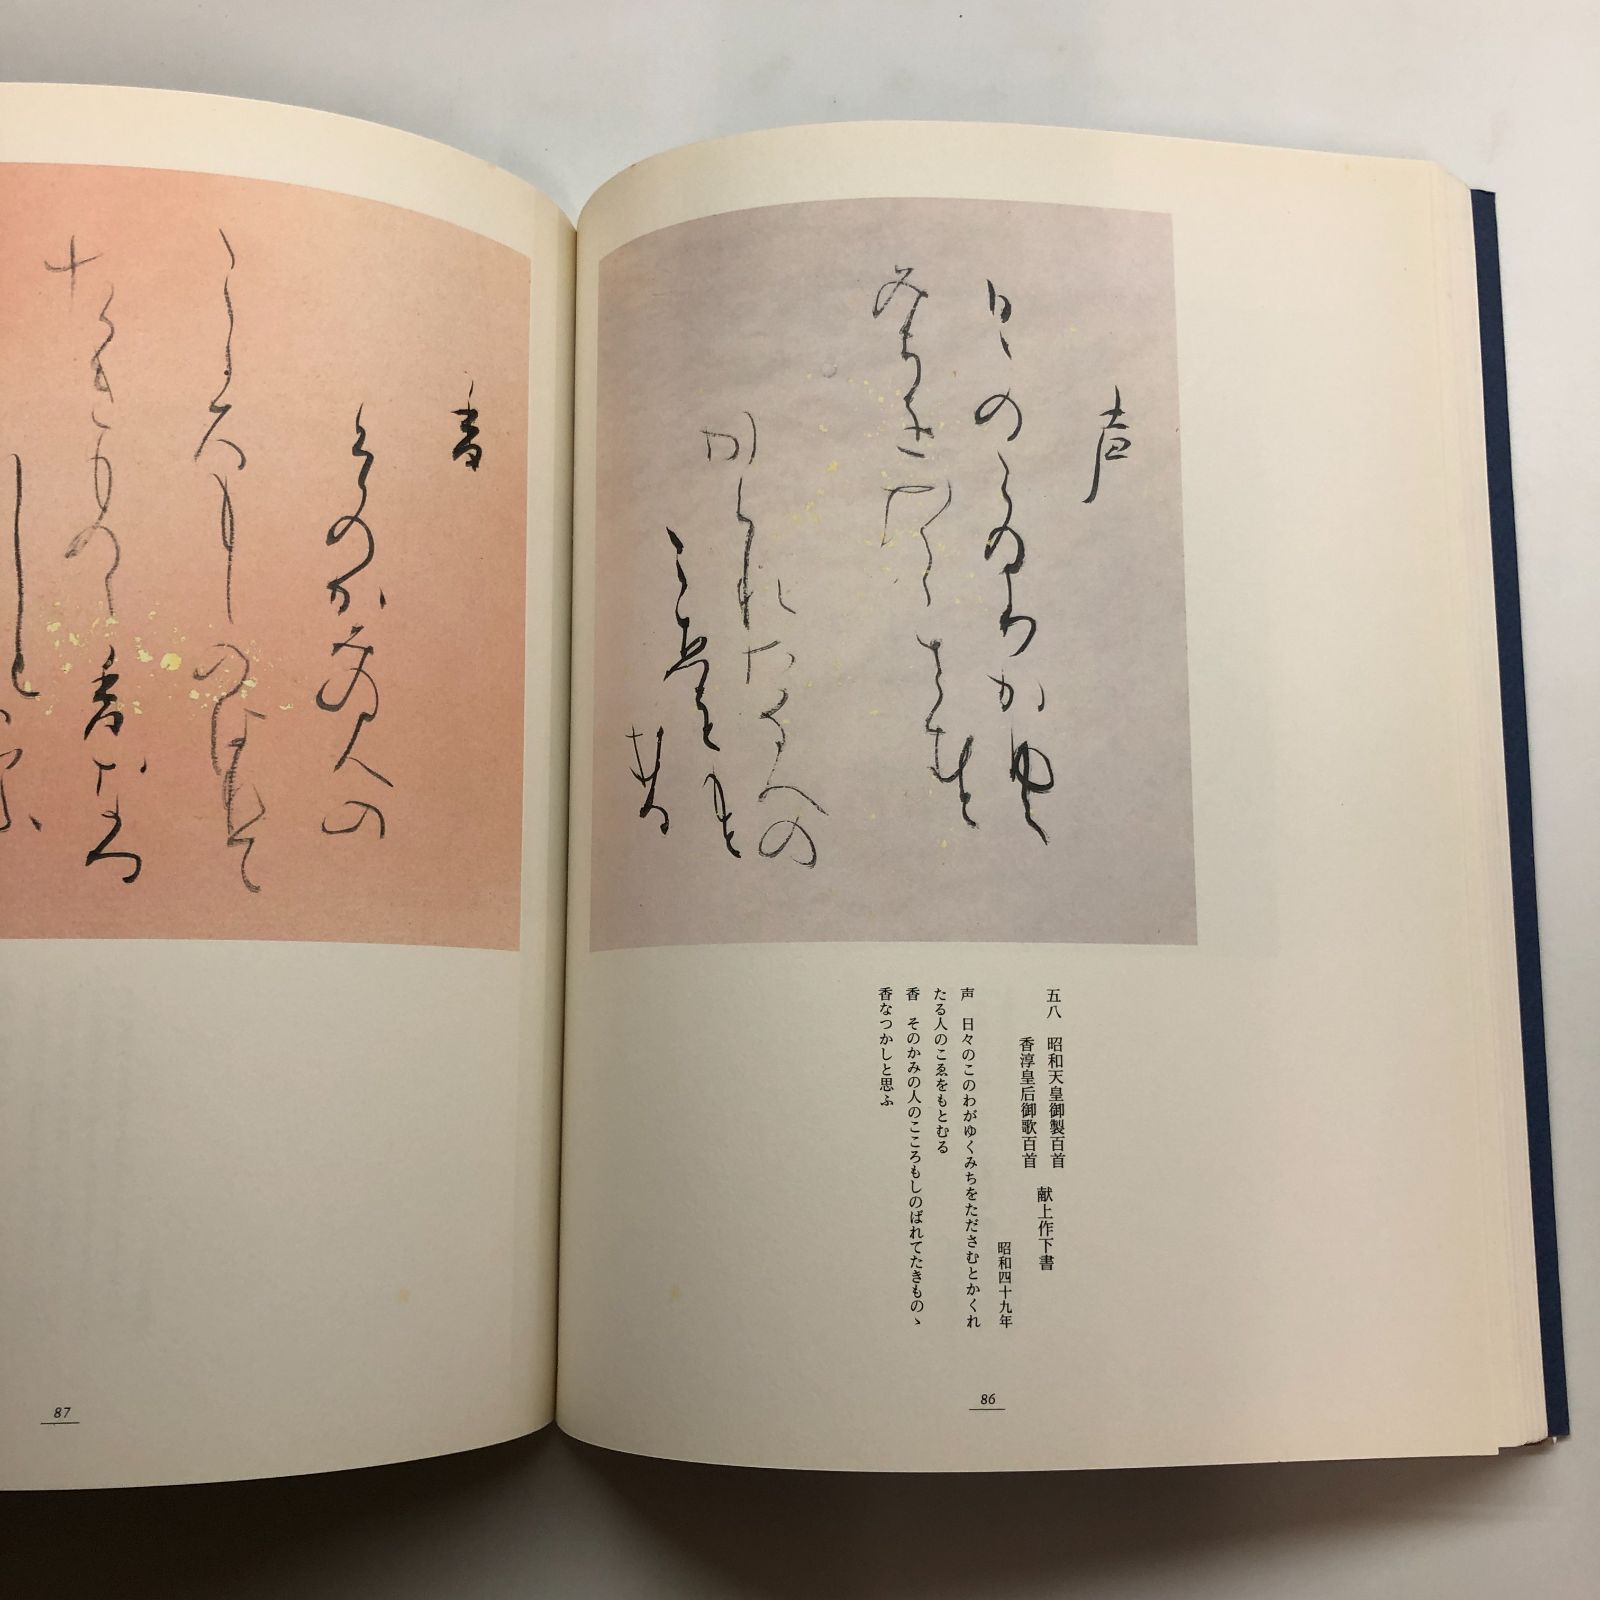 声
日々の
このわかゆく
みちを
たゝさむと
かくれたる人の
こゑを
もと
むる
五八　昭和天皇御製百首
香淳皇后御歌百首　献上作下書
昭和四十九年
声　日々のこのわがゆくみちをたださむとかくれ
たる人のこゑをもとむる
香　そのかみの人のこころもしのばれてたきものゝ
香なつかしと思ふ
86
香
そのかみの人の
こころもしのはれて
たきものゝ香なつ
かしと
思ふ
87